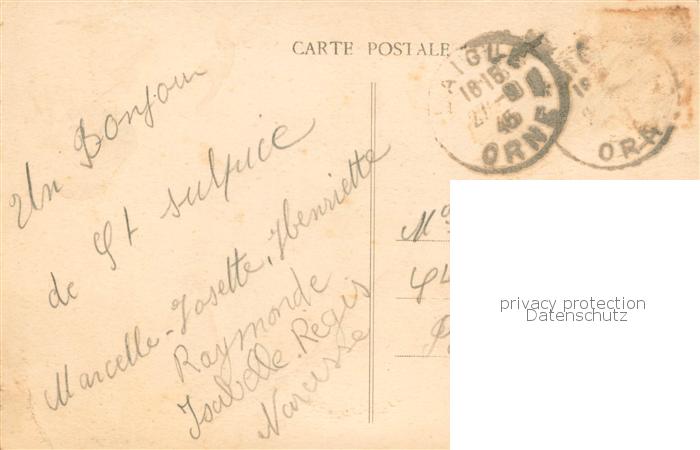 CARTE POSTALE
AIGLE
18-15
21-8
45
ORNE
18
OR
Un Bonjour
de St sulpice
Marcelle - Josette, Henriette
Raymonde
Isabelle, Régis
Narcisse
privacy protection
Datenschutz